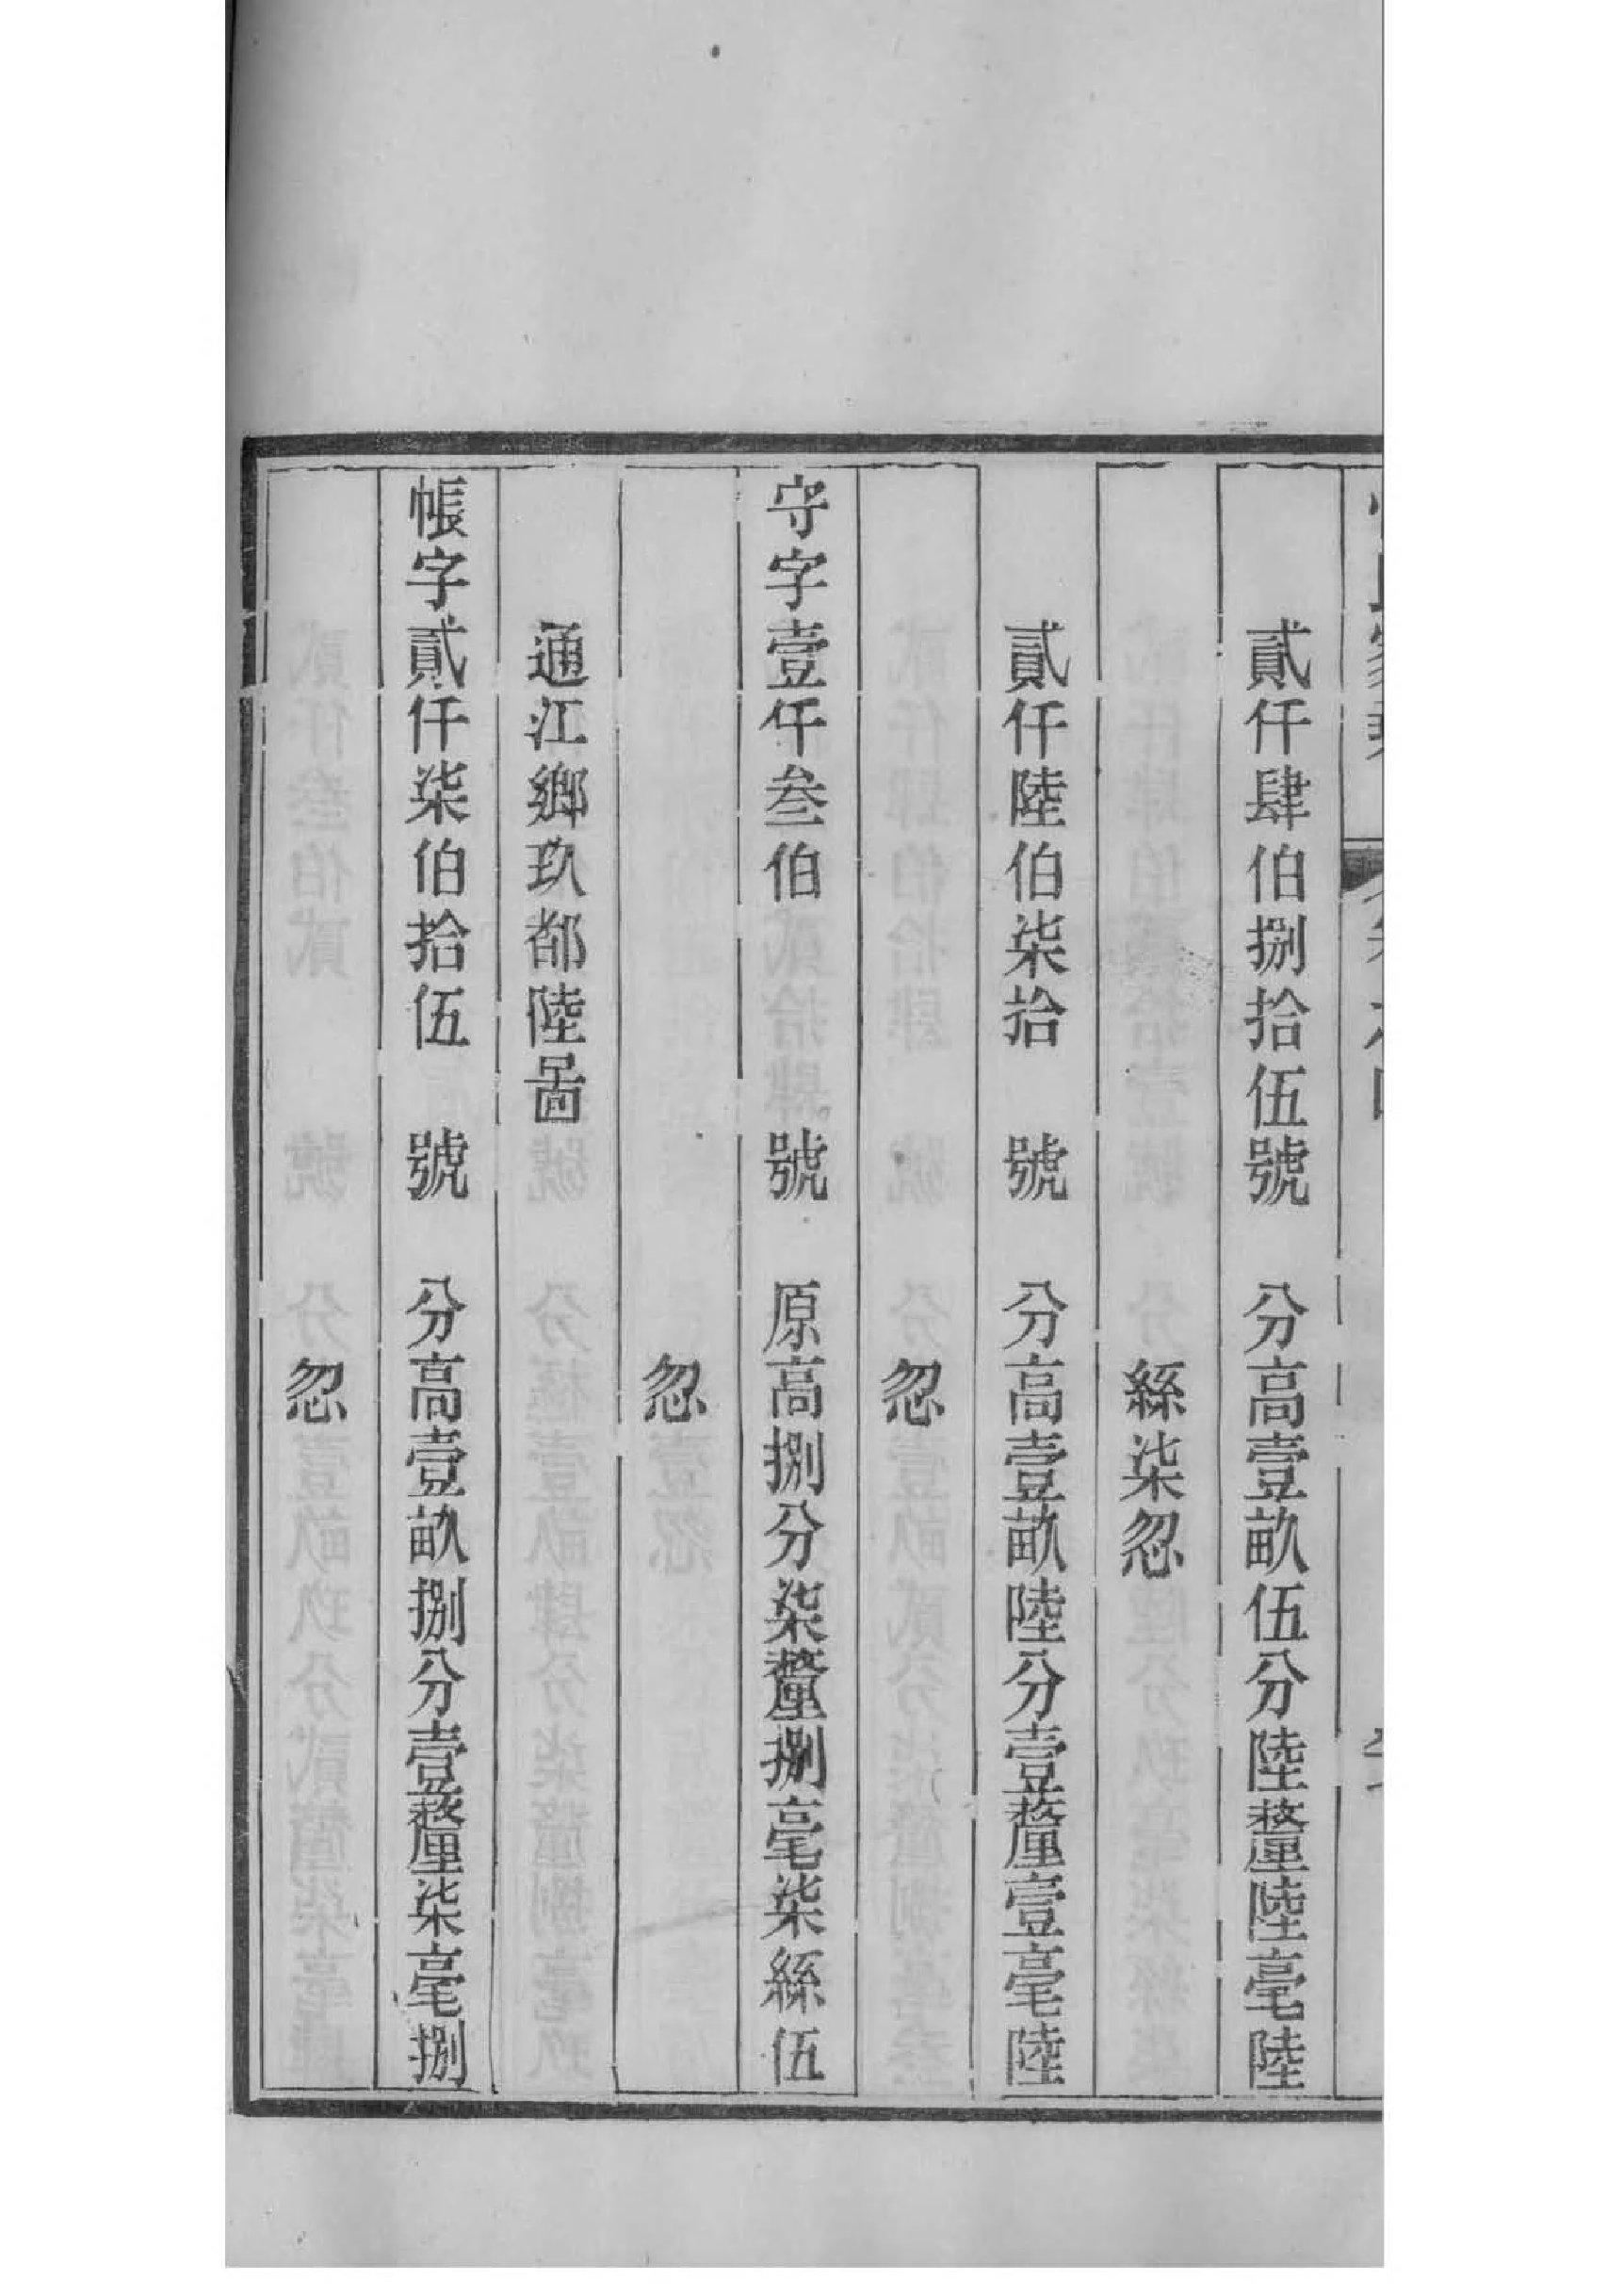 貳仟肆伯捌拾伍號　分高壹畝伍分陸釐陸毫陸
絲柒忽
貳仟陸伯柒拾　號　分高壹畝陸分壹釐壹毫陸
忽
守字壹仟叁伯　號　原高捌分柒釐捌毫柒絲伍
忽
通江鄉玖都陸啚
帳字貳仟柒伯拾伍　號　分高壹畝捌分壹釐柒毫捌
忽